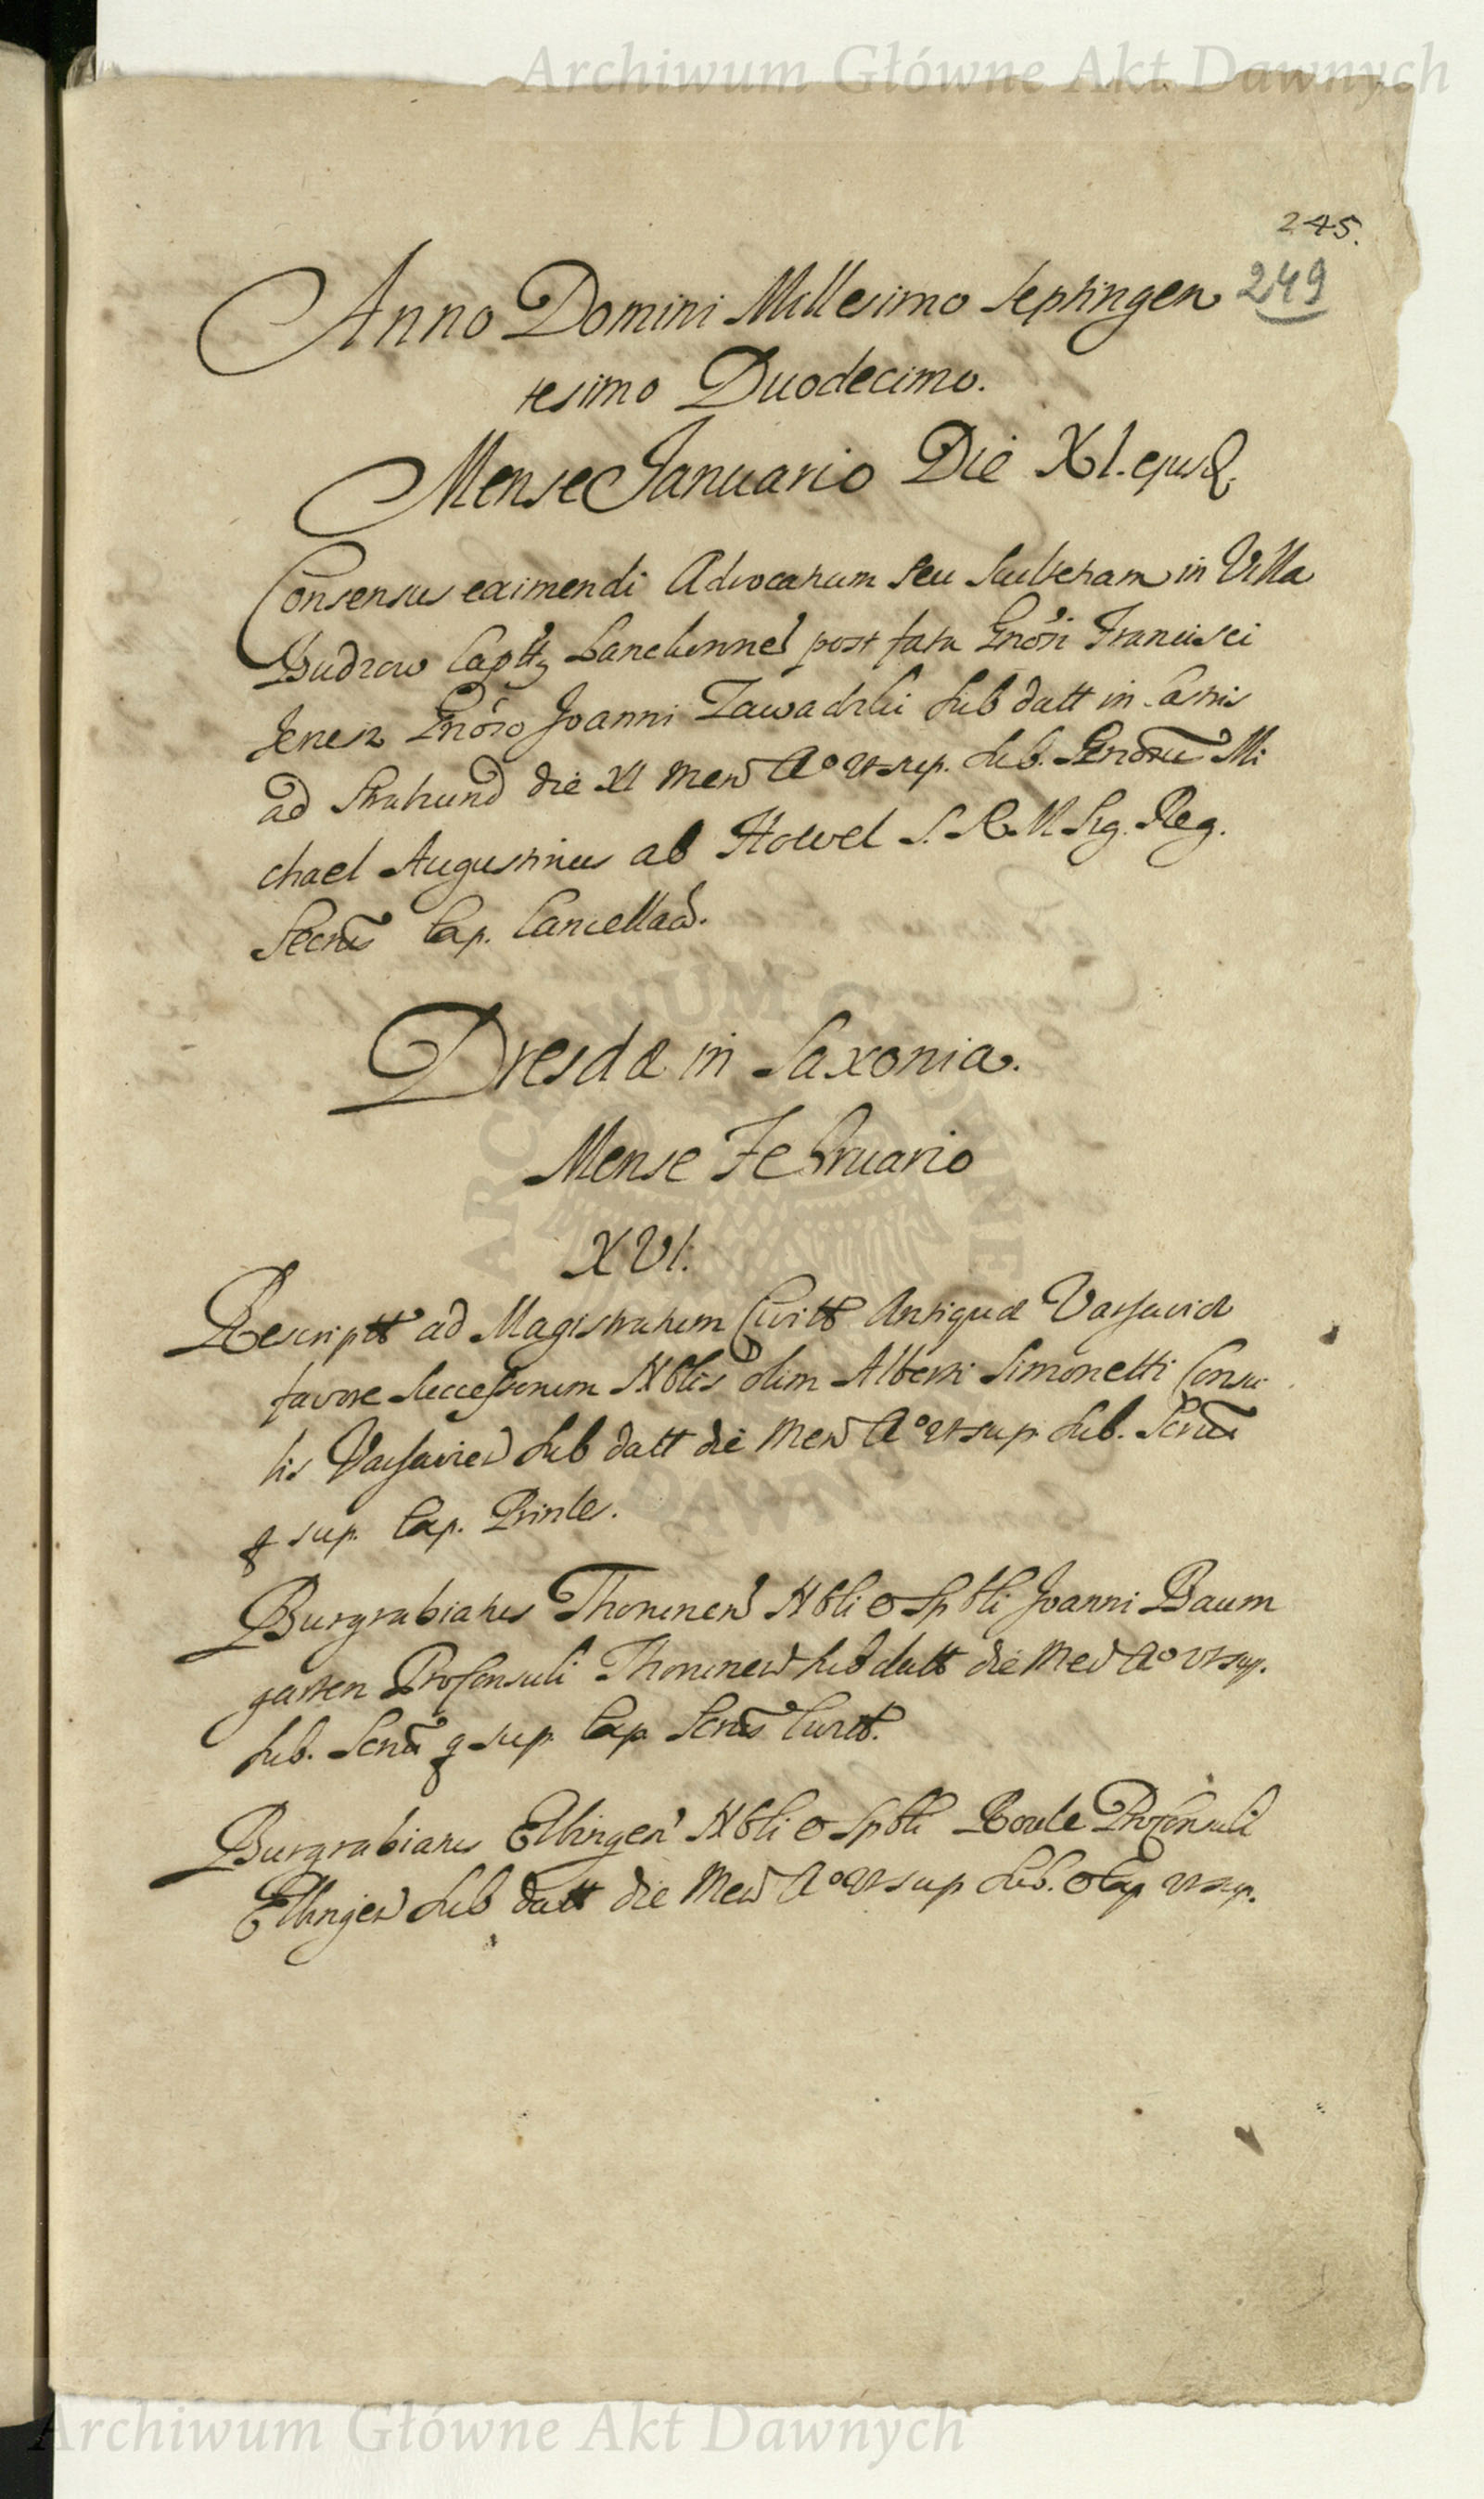 Archiwum Główne Akt Dawnych
245.
249
Anno Domini Millesimo Septingen
tesimo Duodecimo.
Mense Januario Die XI. ejusd.
Consensus eximendi Advocatum seu Scultetiam in Villa
Budrow Captt Lanckonnes post fata Gnosi Francisci
Jenesz Gnoso Joanni Zawadzki sub datt in Castris
ad Stralsund die XI Mens Ao ut sup. Sub. Michael
chael Augustinus ab Howel S. R. M. Sig. Reg.
Secrus Cap. Cancellad.
Dresdæ in Saxonia.
Mense Februario
XVI.
Rescriptt ad Magistratum Civitt Antiquæ Varsaviæ
favore Successorum Nblis olim Alberti Simonetti Consu
lis Varsavien sub datt die Mens Ao ut sup. Sub.
q sup. Cap.
Burgrabiatus Thorunen Nbli & Spbli Joanni Baum
garten Proconsuli Thorunen sub datt die Mens Ao ut sup.
Sub. q sup. Cap.
Burgrabiatus Elbingen Nbli & Spbli Proconsuli
Elbingen sub datt die Mens Ao ut sup Sub. & Cap ut sup.
ARCHIWUM GŁÓWNE AKT DAWNYCH
Archiwum Główne Akt Dawnych